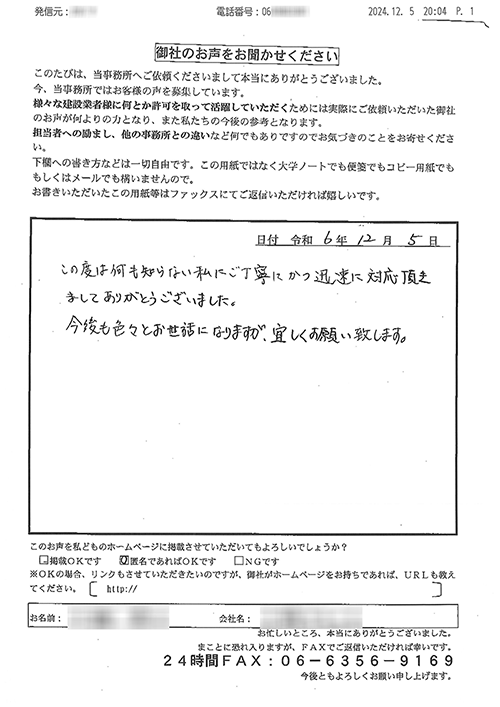 発信元:
電話番号:06
2024.12. 5 20:04 P. 1
御社のお声をお聞かせください
このたびは、当事務所へご依頼くださいまして本当にありがとうございました。
今、当事務所ではお客様の声を募集しています。
様々な建設業者様に何とか許可を取って活躍していただくためには実際にご依頼いただいた御社
のお声が何よりの力となり、また私たちの今後の参考となります。
担当者への励まし、他の事務所との違いなど何でもありですのでお気づきのことをお寄せくださ
い。
下欄への書き方などは一切自由です。この用紙ではなく大学ノートでも便箋でもコピー用紙でも
もしくはメールでも構いませんので。
お書きいただいたこの用紙等はファックスにてご返信いただければ嬉しいです。
日付 令和 6年 12月 5日
この度は何も知らない私にご丁寧にかつ迅速に対応頂き
ましてありがとうございました。
今後も色々とお世話になりますが、宜しくお願い致します。
このお声を私どものホームページに掲載させていただいてもよろしいでしょうか?
□掲載OKです □匿名であればOKです □NGです
※OKの場合、リンクもさせていただきたいのですが、御社がホームページをお持ちであれば、URLも教え
てください。〔 http:// 〕
お名前: 会社名:
お忙しいところ、本当にありがとうございました。
まことに恐れ入りますが、FAXでご返信いただければ幸いです。
24時間FAX:06-6356-9169
今後ともよろしくお願い申し上げます。